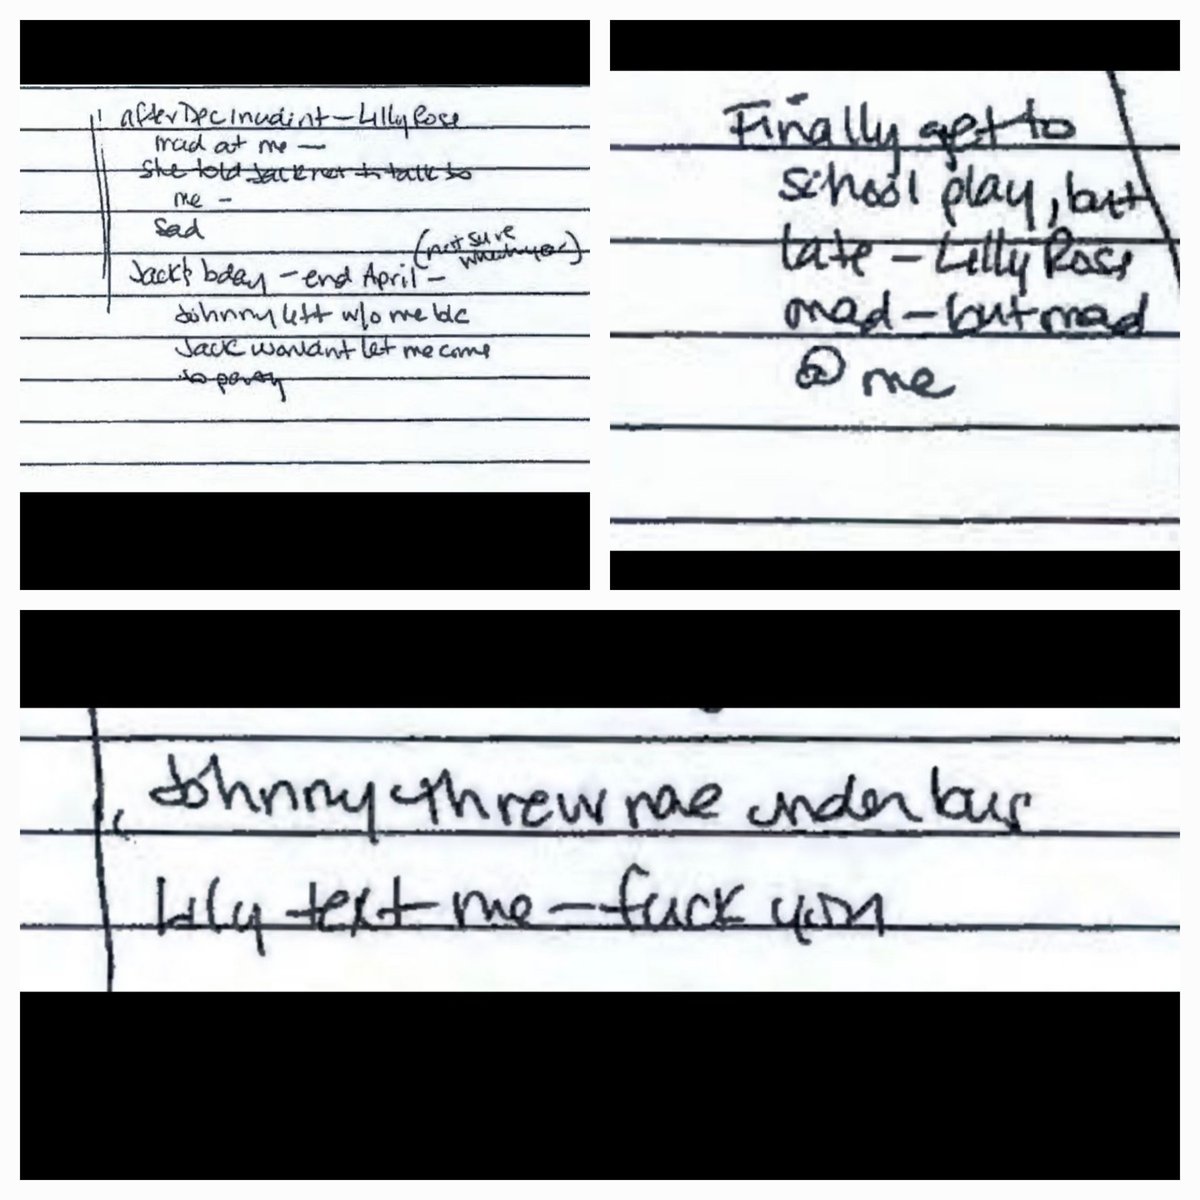 after Dec incident - Lilly Rose
mad at me -
She told Jack not to talk to
me -
Sad
(not sure
which year)
Jack's bday - end April -
Johnny left w/o me b/c
Jack wouldn't let me come
to party
Finally get to
school play, but
late - Lilly Rose
mad - but mad
@ me
Johnny threw me under bus
Lily text me - fuck you